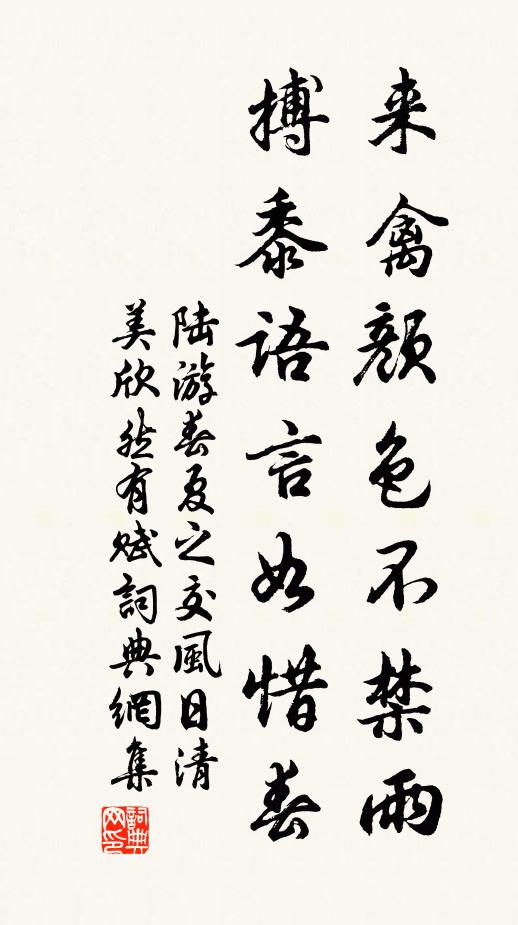 来禽顏色不禁雨
搏黍語言如惜春
陆游春夏之交風日清
美欣然有赋詞典網集
詞典
网印